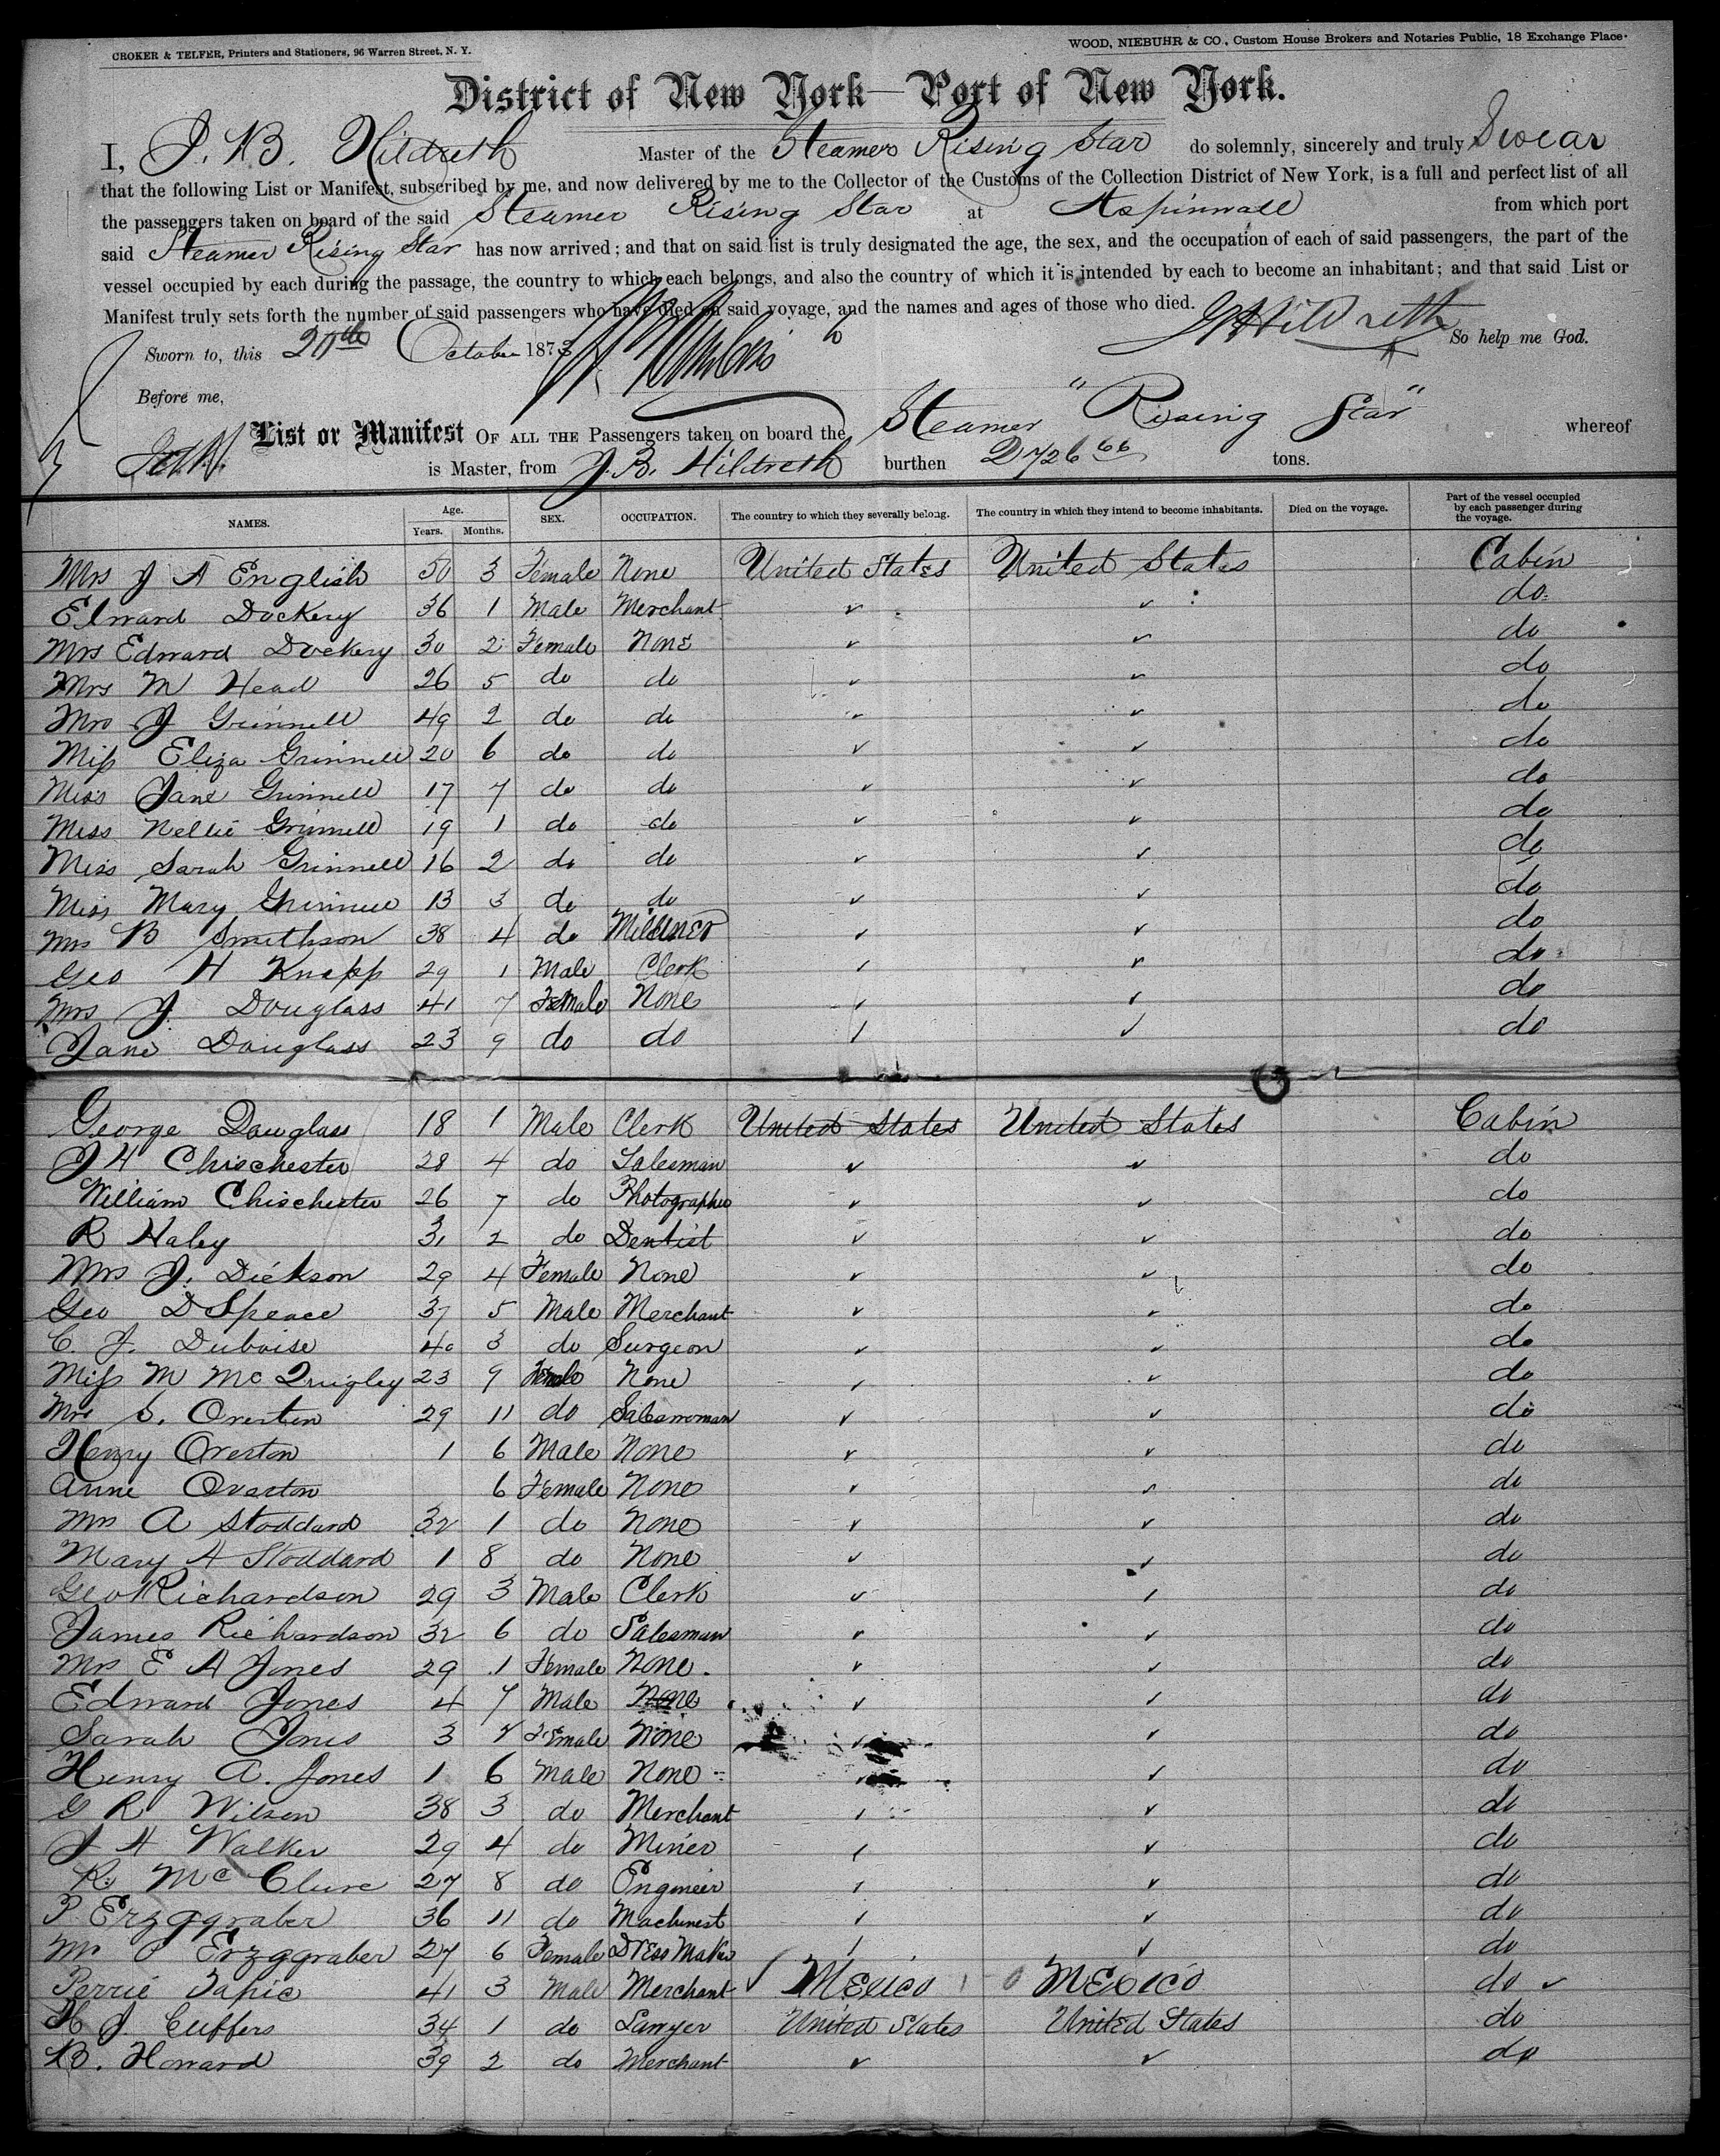 CROKER & TELFER, Printers and Stationers, 96 Warren Street, N. Y.
WOOD, NIEBUHR & CO., Custom House Brokers and Notaries Public, 18 Exchange Place.
District of New York—Port of New York.
I, J. B. Hildreth Master of the Steamer Rising Star do solemnly, sincerely and truly Swear
that the following List or Manifest, subscribed by me, and now delivered by me to the Collector of the Customs of the Collection District of New York, is a full and perfect list of all
the passengers taken on board of the said Steamer Rising Star at Aspinwall from which port
said Steamer Rising Star has now arrived; and that on said list is truly designated the age, the sex, and the occupation of each of said passengers, the part of the
vessel occupied by each during the passage, the country to which each belongs, and also the country of which it is intended by each to become an inhabitant; and that said List or
Manifest truly sets forth the number of said passengers who have died on said voyage, and the names and ages of those who died. JBHildreth
Sworn to, this October 187 So help me God.
Before me,
List or Manifest OF ALL THE Passengers taken on board the Steamer "Rising Star" whereof
is Master, from J. B. Hildreth burthen 2726 66 tons.
NAMES. Age. Years. Months. SEX. OCCUPATION. The country to which they severally belong. The country in which they intend to become inhabitants. Died on the voyage. Part of the vessel occupied by each passenger during the voyage.
Mrs J A English 50 3 Female None United States United States Cabin
Edward Dockery 36 1 Male Merchant ✓ ✓ do
Mrs Edward Dockery 30 2 Female None ✓ ✓ do
Mrs M Head 26 5 do do ✓ ✓ do
Mrs J Grinnell 49 2 do do ✓ ✓ do
Miss Eliza Grinnell 20 6 do do ✓ ✓ do
Miss Jane Grinnell 17 7 do do ✓ ✓ do
Miss Nellie Grinnell 19 1 do do ✓ ✓ do
Miss Sarah Grinnell 16 2 do do ✓ ✓ do
Miss Mary Grinnell 13 3 do do ✓ ✓ do
Mrs B Smithson 38 4 do Milliner ✓ ✓ do
Geo H Knapp 29 1 Male Clerk ✓ ✓ do
Mrs J. Douglass 41 7 Female None ✓ ✓ do
Jane Douglass 23 9 do do ✓ ✓ do
George Douglass 18 1 Male Clerk United States United States Cabin
J H Chischester 28 4 do Salesman ✓ ✓ do
William Chischester 26 7 do Photographer ✓ ✓ do
R Haley 31 2 do Dentist ✓ ✓ do
Mrs J. Dickson 29 4 Female None ✓ ✓ do
Geo D Speace 37 5 Male Merchant ✓ ✓ do
C. J. Duboise 40 3 do Surgeon ✓ ✓ do
Miss M McQuigley 23 9 Female None ✓ ✓ do
Mrs S. Overton 29 11 do Saleswoman ✓ ✓ do
Henry Overton 1 6 Male None ✓ ✓ do
Anne Overton 6 Female None ✓ ✓ do
Mrs A Stoddard 32 1 do None ✓ ✓ do
Mary A Stoddard 1 8 do None ✓ ✓ do
Geo Richardson 29 3 Male Clerk ✓ ✓ do
James Richardson 32 6 do Salesman ✓ ✓ do
Mrs E A Jones 29 1 Female None ✓ ✓ do
Edward Jones 4 7 Male None ✓ ✓ do
Sarah Jones 3 Female None ✓ ✓ do
Henry A. Jones 1 6 Male None ✓ ✓ do
G R Wilson 38 3 do Merchant ✓ ✓ do
J H Walker 29 4 do Miner ✓ ✓ do
R. McClure 27 8 do Engineer ✓ ✓ do
P Erzggraber 36 11 do Machinest ✓ ✓ do
Mrs P Erzggraber 27 6 Female Dress Maker ✓ ✓ do
Perrie Tapie 41 3 Male Merchant ✓ Mexico Mexico do ✓
J. Cuffers 34 1 do Lawyer United States United States do
B. Howard 39 2 do Merchant ✓ ✓ do